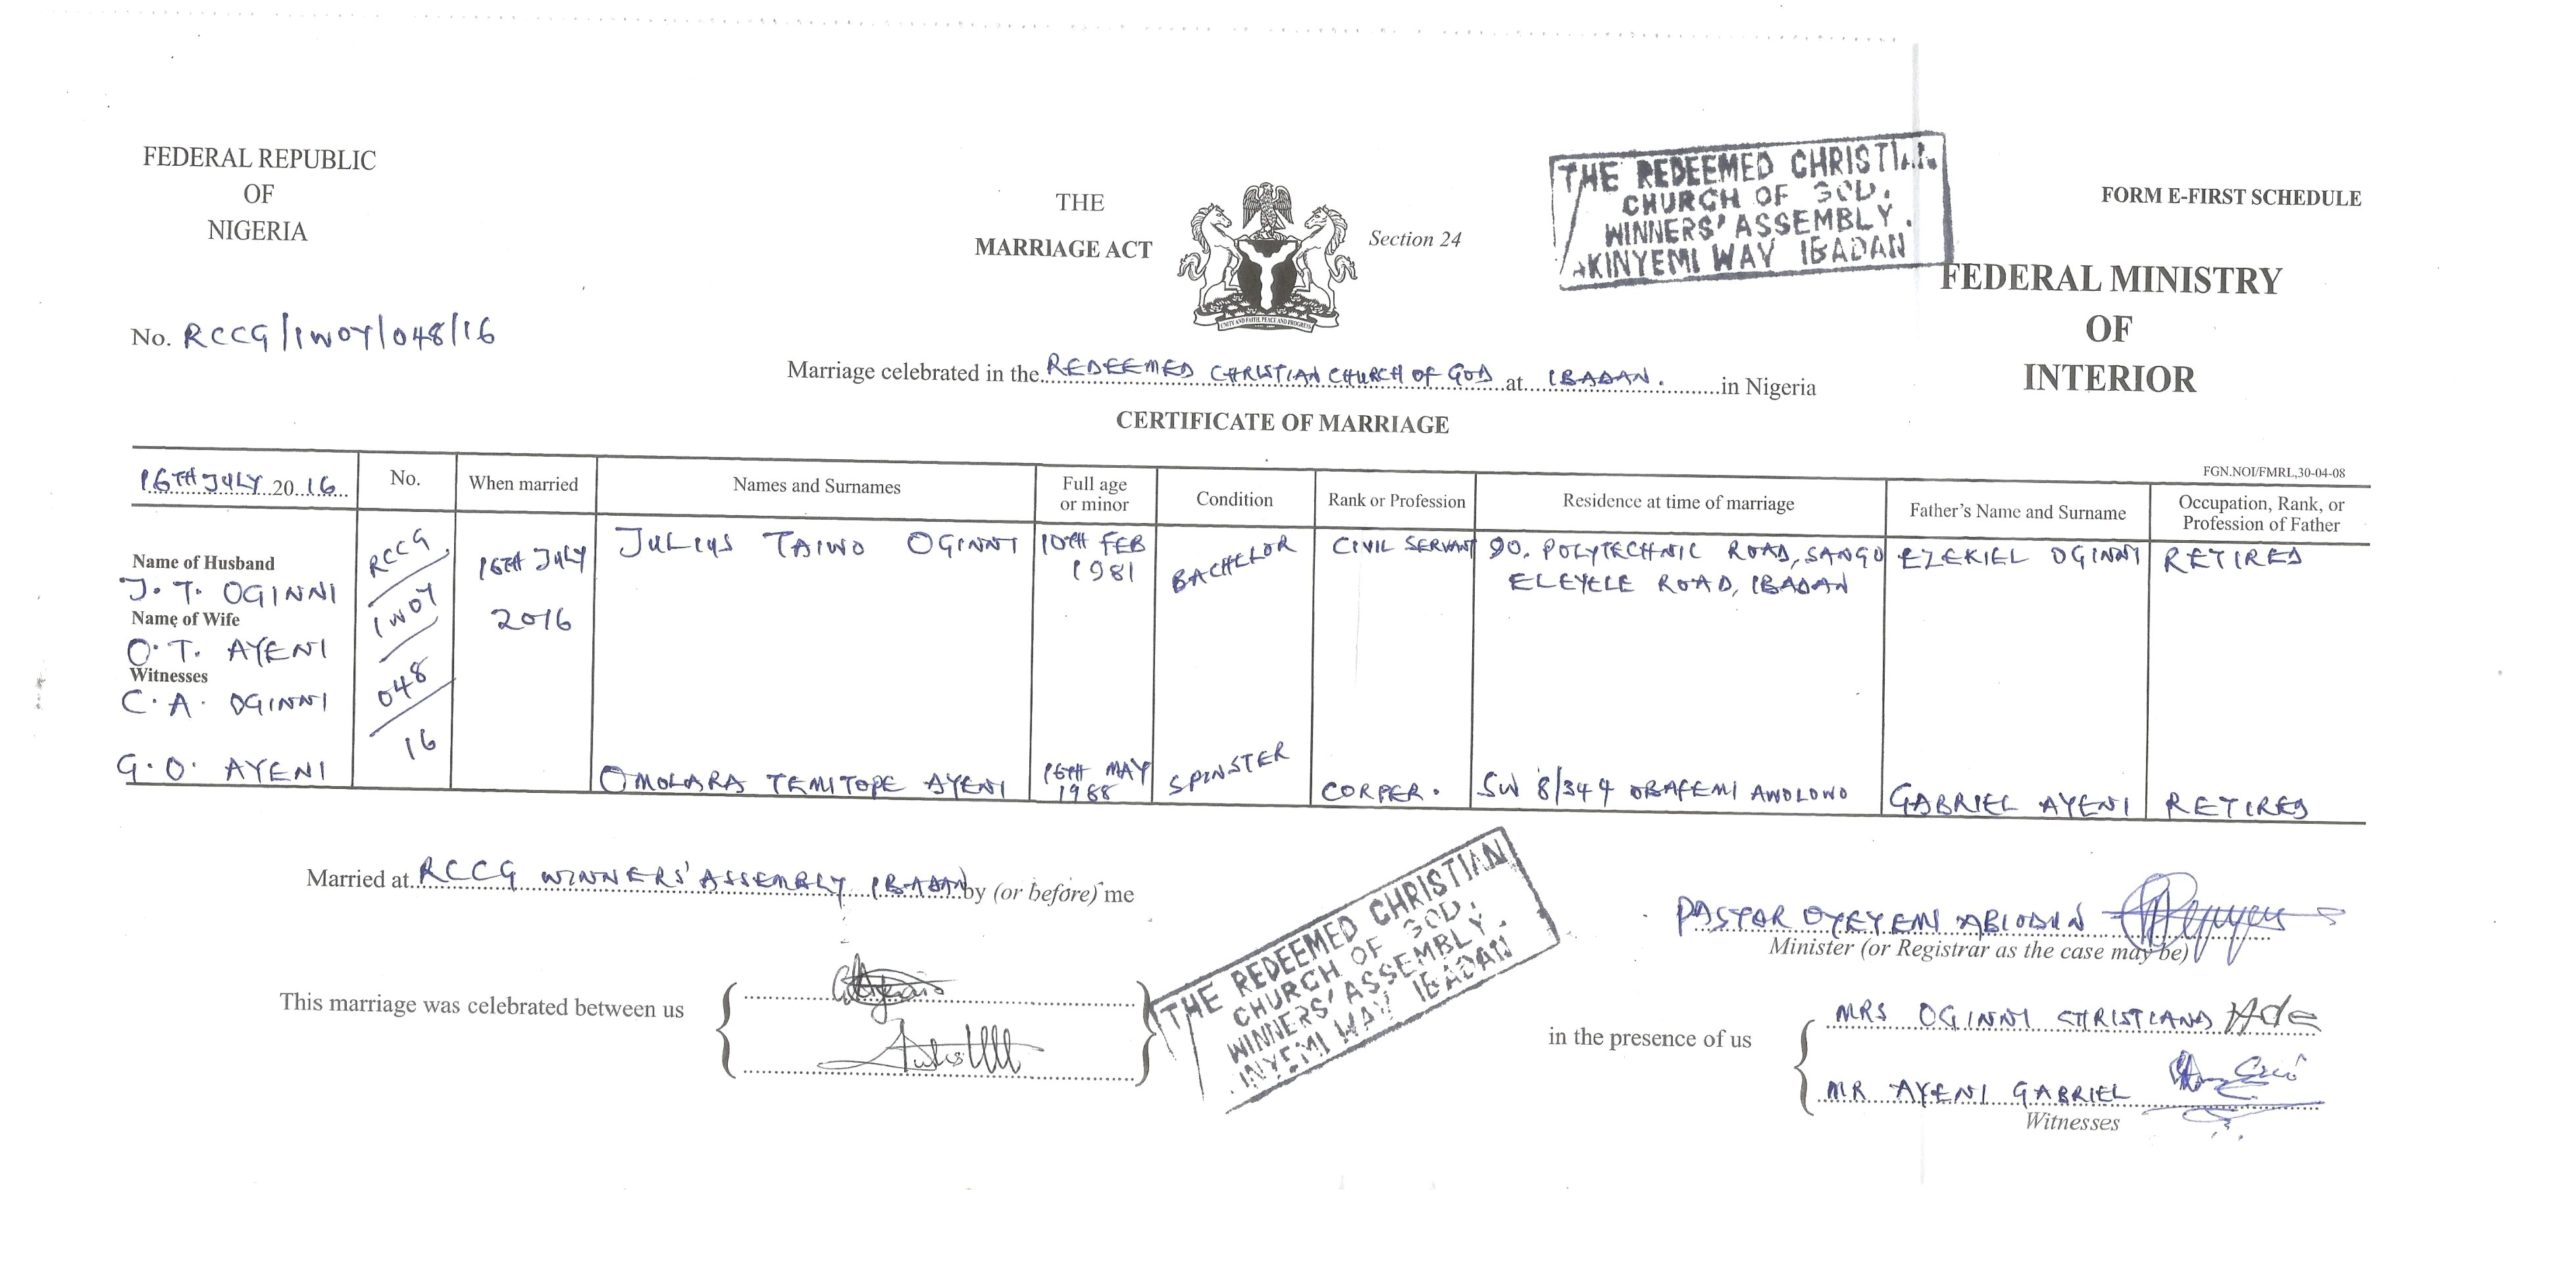 FEDERAL REPUBLIC
OF
NIGERIA
THE
MARRIAGE ACT
Section 24
UNITY AND FAITH, PEACE AND PROGRESS
THE REDEEMED CHRISTIAN
CHURCH OF GOD.
WINNERS' ASSEMBLY.
AKINYEMI WAY IBADAN
FORM E-FIRST SCHEDULE
FEDERAL MINISTRY
OF
INTERIOR
No. RCCG/IWOY/048/16
Marriage celebrated in the REDEEMED CHRISTIAN CHURCH OF GOD at IBADAN. in Nigeria
CERTIFICATE OF MARRIAGE
FGN.NOI/FMRL,30-04-08
16TH JULY 2016
No.
When married
Names and Surnames
Full age
or minor
Condition
Rank or Profession
Residence at time of marriage
Father's Name and Surname
Occupation, Rank, or
Profession of Father
Name of Husband
J. T. OGINNI
Name of Wife
O. T. AYENI
Witnesses
C. A. OGINNI
G. O. AYENI
RCCG
IWOY
048
16
16TH JULY
2016
JULIUS TAIWO OGINNI
10TH FEB
1981
BACHELOR
CIVIL SERVANT
90, POLYTECHNIC ROAD, SANGO
ELEYELE ROAD, IBADAN
EZEKIEL OGINNI
RETIRED
OMOLARA TEMITOPE AYENI
16TH MAY
1988
SPINSTER
CORPER.
SW 8/344 OBAFEMI AWOLOWO
GABRIEL AYENI
RETIRED
Married at RCCG WINNERS' ASSEMBLY IBADAN by (or before) me
PASTOR OYEYEMI ABIODUN
Minister (or Registrar as the case may be)
This marriage was celebrated between us
THE REDEEMED CHRISTIAN
CHURCH OF GOD.
WINNERS' ASSEMBLY.
INYEMI WAY IBADAN
in the presence of us
MRS OGINNI CHRISTIANA
MR AYENI GABRIEL
Witnesses